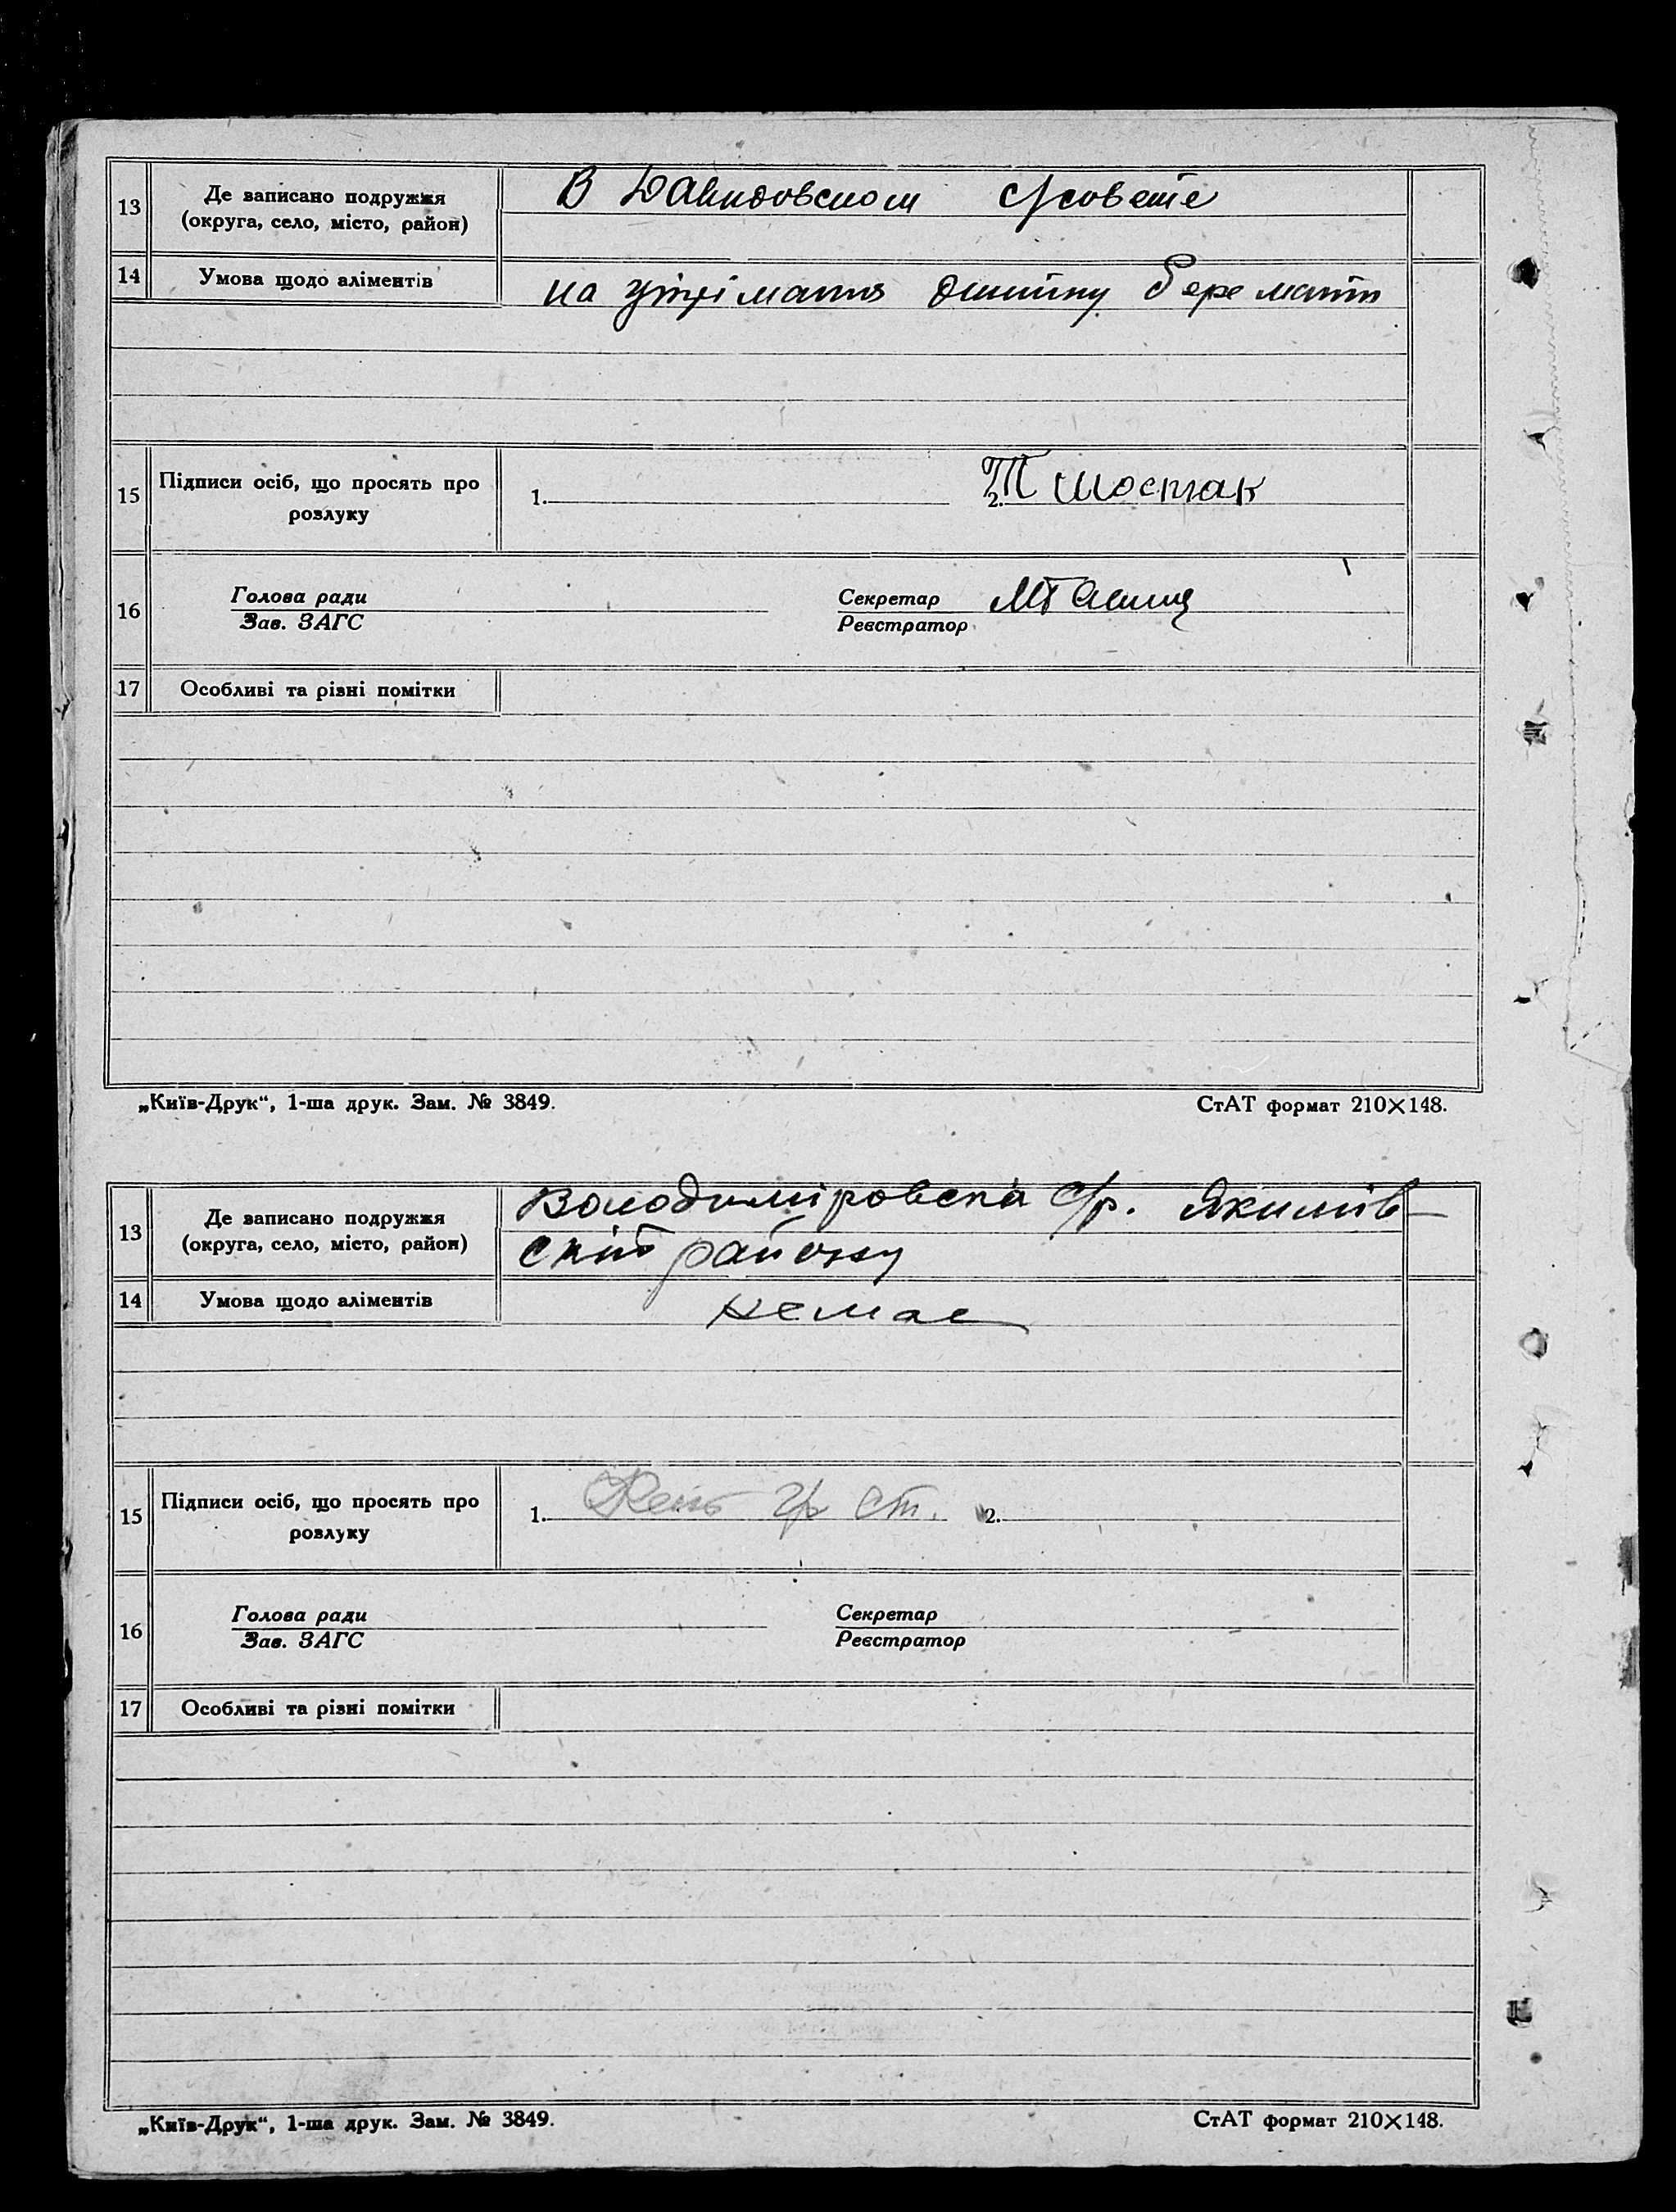 13
Де записано подружжя
(округа, село, місто, район)
В Давидовском с/совете
14
Умова щодо аліментів
на утрімання дитину бере мати
15
Підписи осіб, що просять про
розлуку
1.
2.
Т Шостак
16
Голова ради
Зав. ЗАГС
Секретар
Реєстратор
17
Особливі та різні помітки
„Київ-Друк“, 1-ша друк. Зам. № 3849.
СтАТ формат 210×148.
13
Де записано подружжя
(округа, село, місто, район)
Володиміровска с/р. Якимів-
ский району
14
Умова щодо аліментів
немає
15
Підписи осіб, що просять про
розлуку
1.
2.
16
Голова ради
Зав. ЗАГС
Секретар
Реєстратор
17
Особливі та різні помітки
„Київ-Друк“, 1-ша друк. Зам. № 3849.
СтАТ формат 210×148.